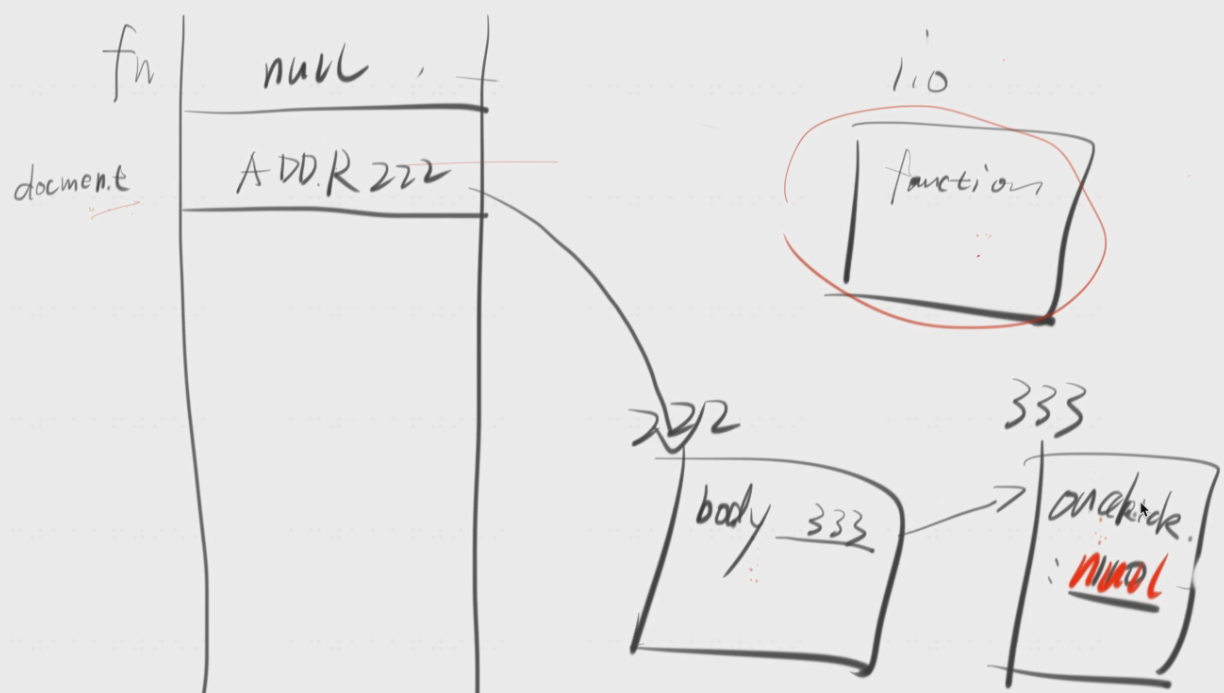 fn
null
docment
ADDR 222
110
function
222
body 333
333
onclick
: null